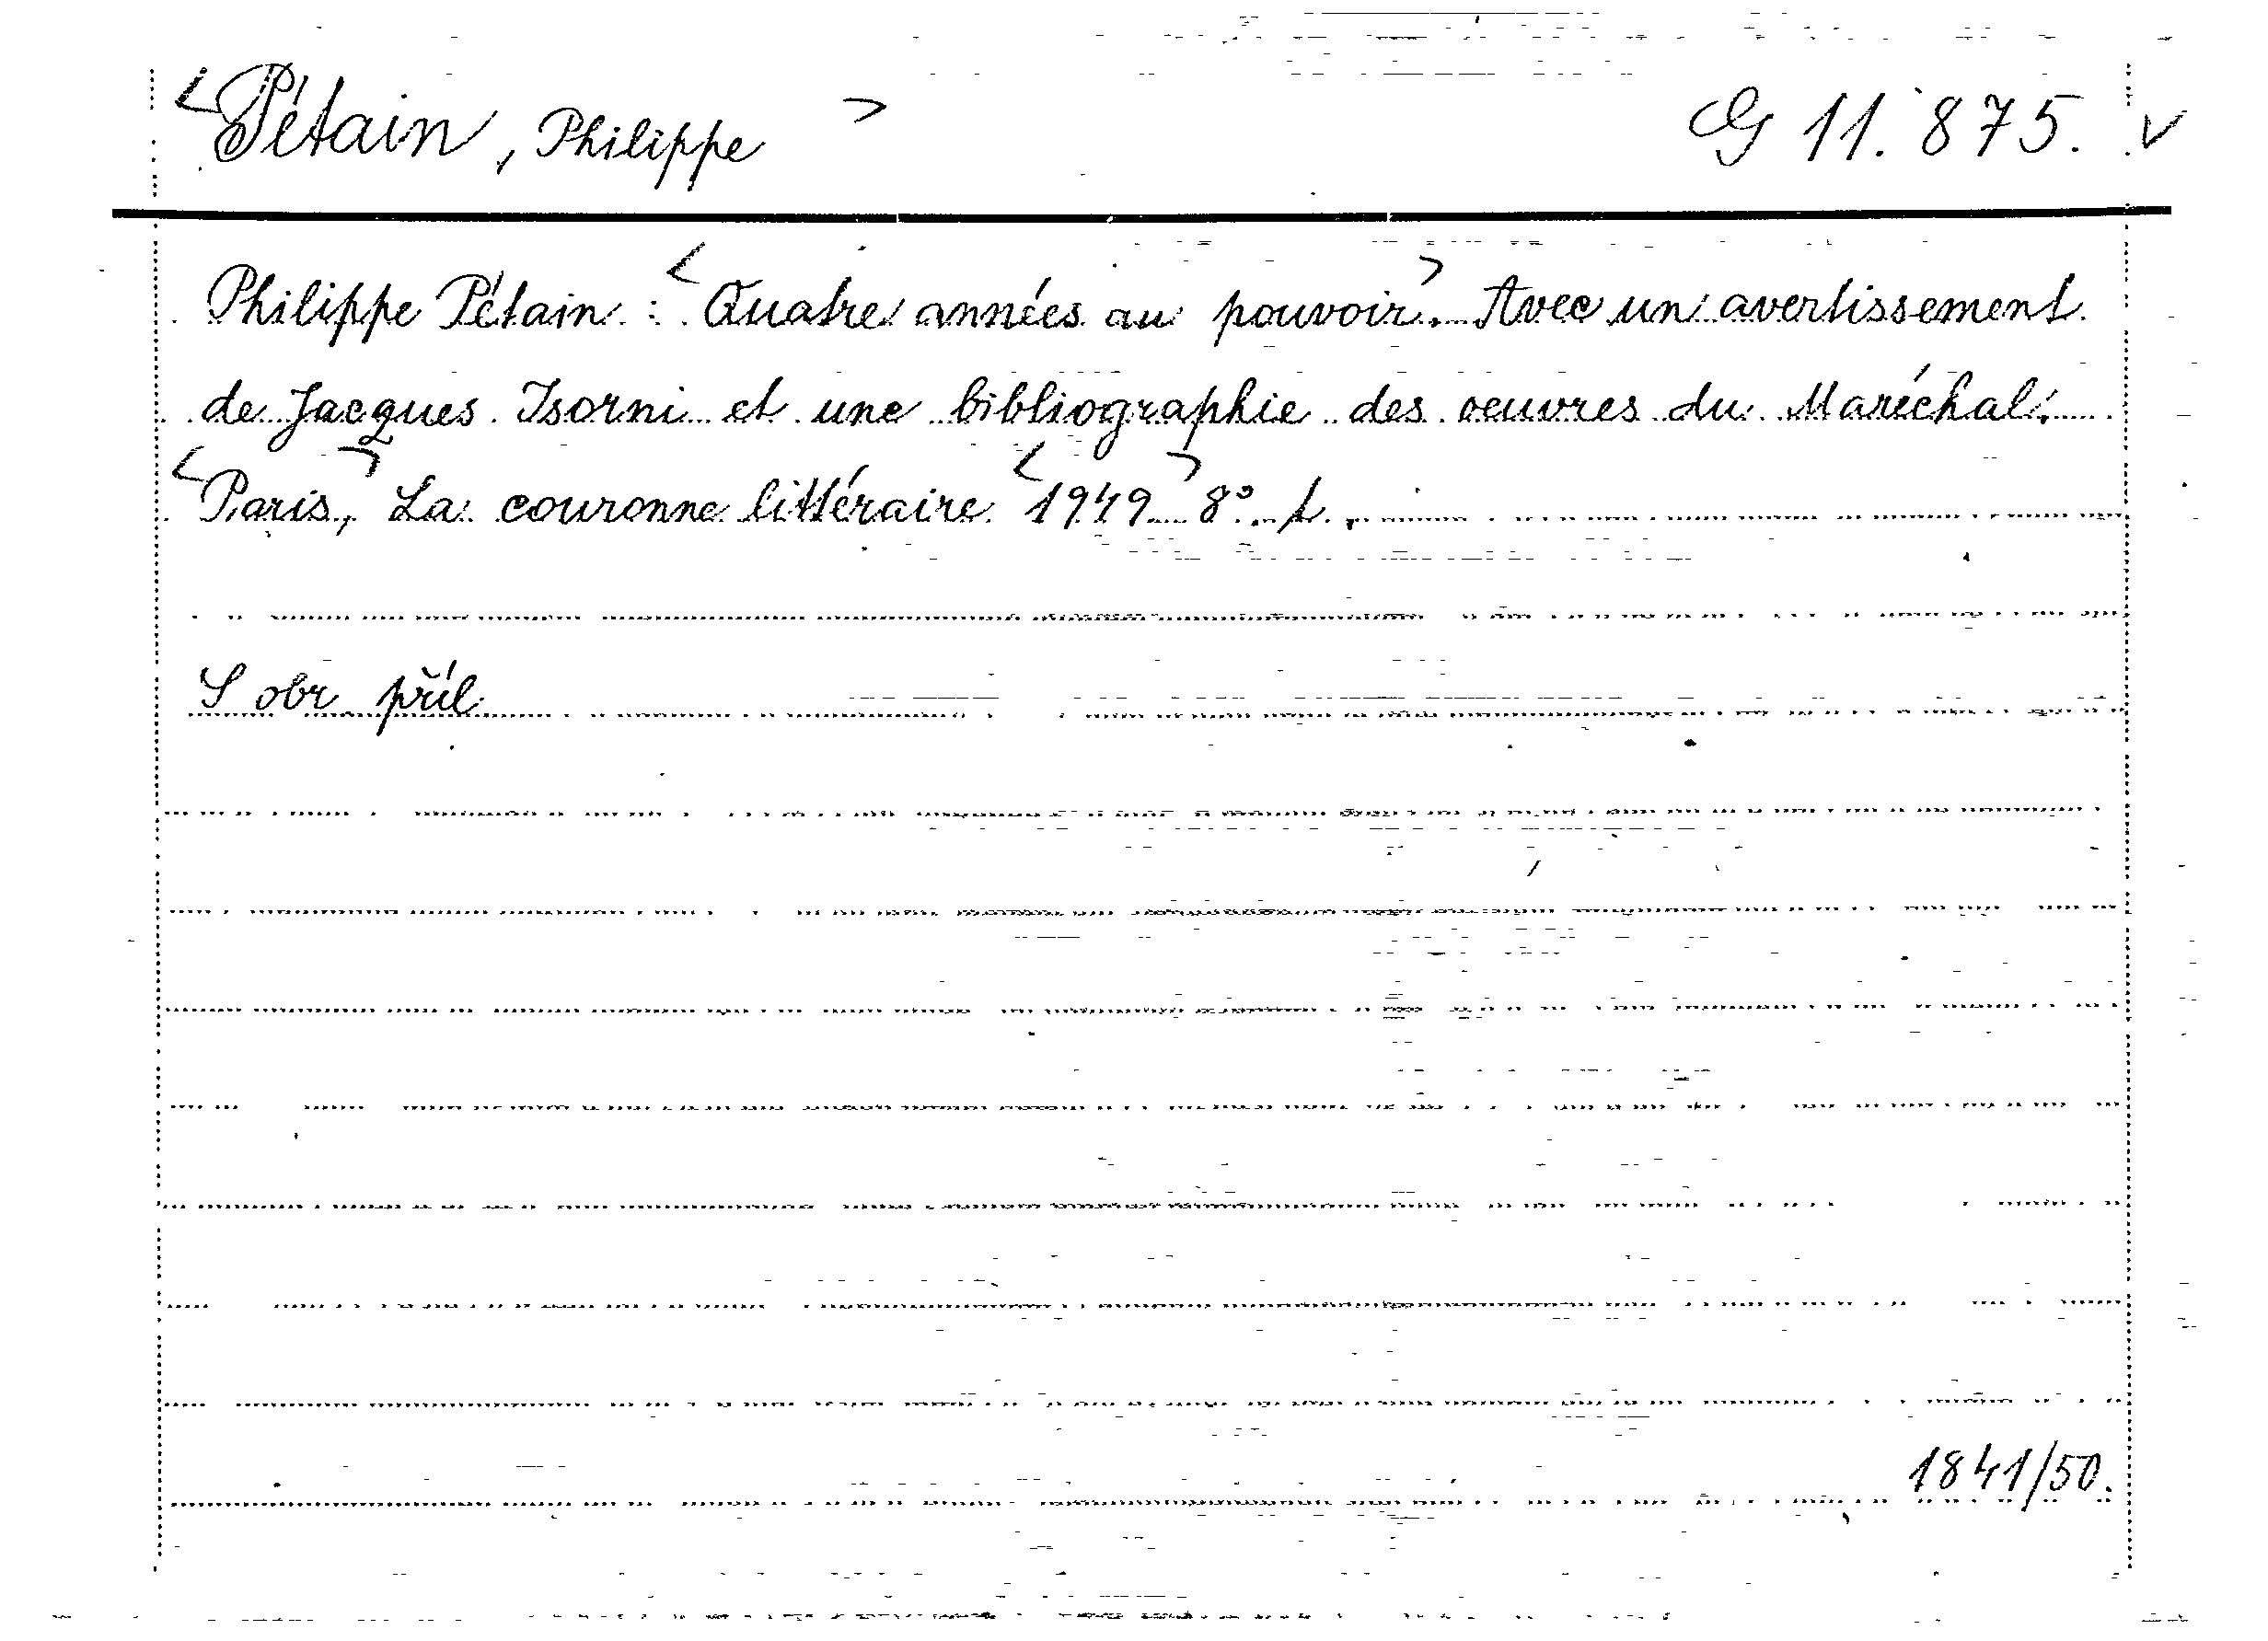 <Pétain, Philippe> G 11.875. v
Philippe Pétain: <Quatre années au pouvoir>. Avec un avertissement
de Jacques Isorni et une bibliographie des oeuvres du Maréchal.
<Paris,> La couronne littéraire <1949> 8°.
S obr. příl.
1841/50.